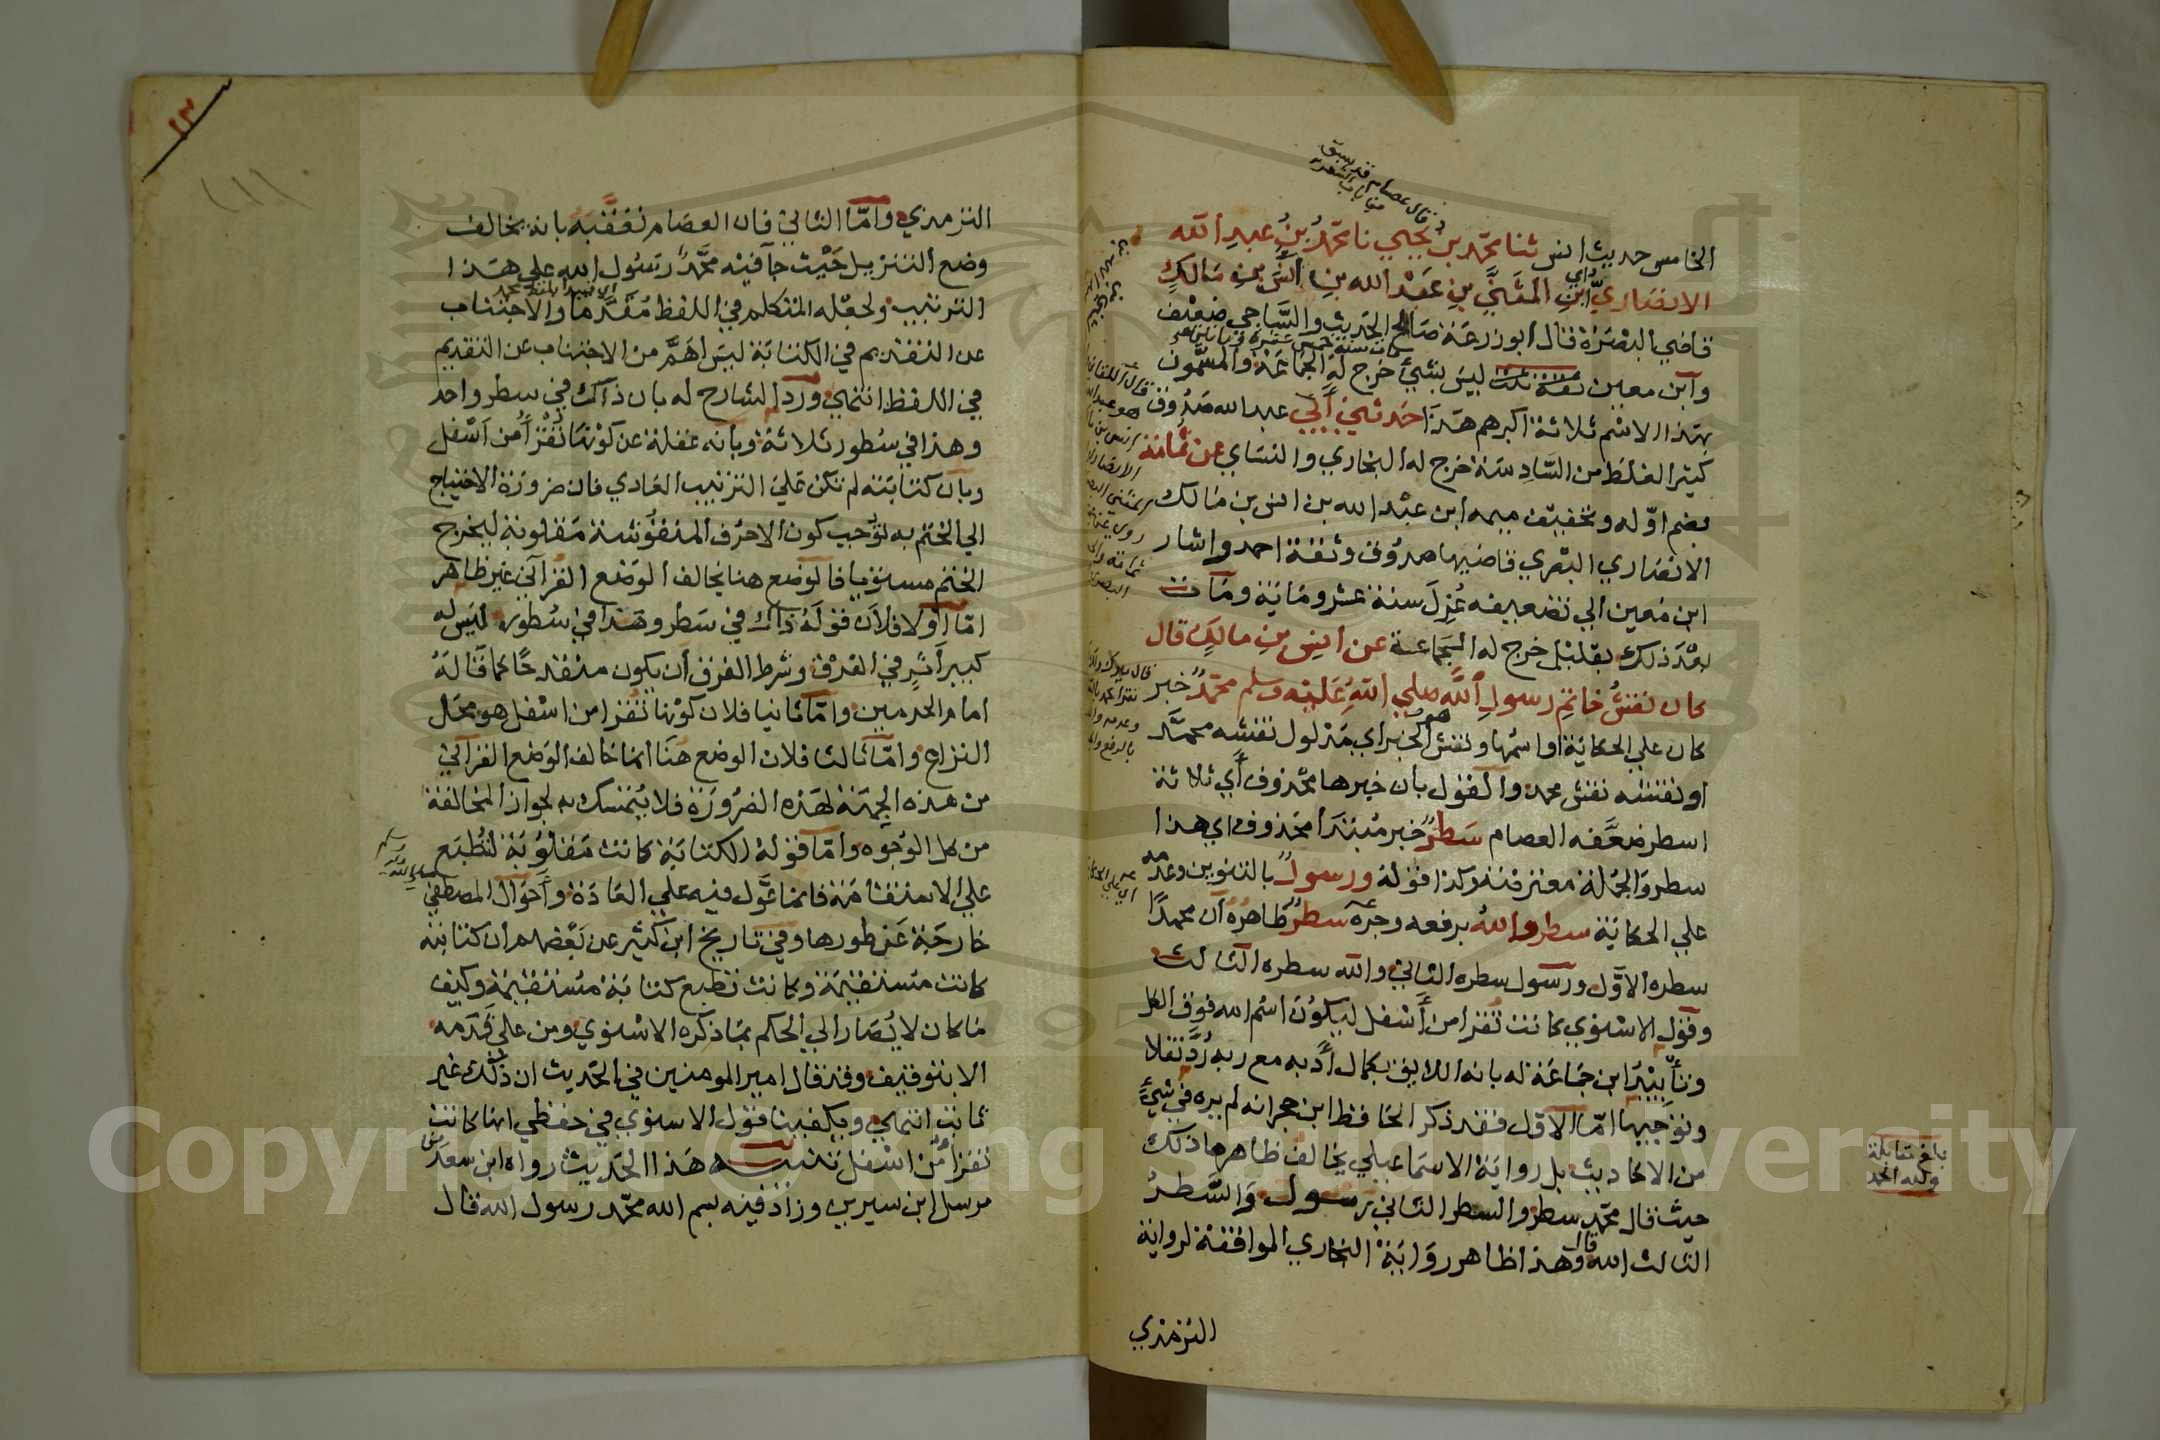 الخامس حديث انس ثنا محمد بن يحيي نا محمد بن عبد الله
الانصاري اي ابن المثني بن عبد الله بن انس بن مالك
قاضي البصرة قال ابو زرعة صالح الحديث والساجي ضعيف
وابن معين ثقة ليس بشئ خرج له الجماعة والمسمون
بهذا الاسم ثلاثة اكبرهم هذا حدثني أبي عبد الله صدوق
كثير الغلط من السادسة خرج له البخاري والنساي عن ثمامة
بضم اوله وتخفيف ميمه ابن عبد الله بن انس بن مالك
الانصاري البصري قاضيها صدوق وثقة احمد واشار
ابن معين الي تضعيفه عزل سنة عشر ومائة ومات
بعد ذلك بقليل خرج له الجماعة عن انس بن مالك قال
كان نقش خاتم رسول الله صلي الله عليه وسلم محمد خبر
كان علي الحكاية او اسمها ونقش هو الخبر اي مدلول نقشه محمد
او نقشه نقش محمد والقول بان خبرها محذوف أي ثلاثة
اسطر ضعفه العصام سطر خبر مبتدأ محذوف اي هذا
سطر والجملة معترضة وكذا قوله ورسول بالتنوين وعدمه
علي الحكاية سطر والله برفعه وجره سطر ظاهره أن محمدا
سطره الاول ورسول سطره الثاني والله سطره الثالث
وقول الاسنوي كانت تقرا من أسفل ليكون اسم الله فوق الكل
وتأييد ابن جماعة له بانه اللايق بكمال أدبه مع ربه رد نقلا
وتوجيها اما الاول فقد ذكر الحافظ ابن حجر انه لم يره في شيء
من الاحاديث بل رواية الاسماعيلي يخالف ظاهرها ذلك
حيث قال محمد سطر والسطر الثاني رسول والسطر
الثالث الله قال وهذا ظاهر رواية البخاري الموافقة لرواية
الترمذي
بلغ مقابلة
ولله الحمد
١٣
الترمذي واما الثاني فان العصام تعقبه بانه يخالف
وضع التنزيل حيث جآ فيه محمد رسول الله علي هذا
الترتيب ولجعله المتكلم في اللفظ مقدما والاجتناب
عن التقديم في الكتابة ليس اهم من الاجتناب عن التقديم
في اللفظ انتهي ورد الشارح له بان ذاك في سطر واحد
وهذا في سطور ثلاثة وبأنه غفلة عن كونها تقرأ من اسفل
وبان كتابته لم تكن علي الترتيب العادي فان ضرورة الاحتياج
الي الختم به توجب كون الاحرف المنقوشة مقلوبة ليخرج
الختم مستويا فالوضع هنا يخالف الوضع القرآني غير ظاهر
اما اولا فلان قوله ذاك في سطر وهذا في سطور ليس له
كبير أثر في الفرق وشرط الفرق أن يكون منقدحا كما قاله
امام الحرمين واما ثانيا فلان كونها تقرا من اسفل هو محل
النزاع واما ثالثا فلان الوضع هنا انما خالف الوضع القرآني
من هذه الجهة لهذه الضرورة فلا يتمسك به لجواز المخالفة
من كل الوجوه واما قوله الكتابة كانت مقلوبة لتطبع
علي الاستقامة فانما عول فيه علي العادة وأحوال المصطفي
خارجة عن طورها وفي تاريخ ابن كثير عن بعضهم أن كتابته
كانت مستقيمة وكانت تطبع كتابة مستقيمة وكيف
ما كان لا يصار الي الحكم بما ذكره الاسنوي ومن علي قدمه
الا بتوقيف وقد قال امير المومنين في الحديث ان ذلك غير
ثابت انتهي ويكفينا قول الاسنوي في حفظي انها كانت
تقرا من اسفل تنبيه هذا الحديث رواه ابن سعد
مرسل ابن سيرين وزاد فيه بسم الله محمد رسول الله قال